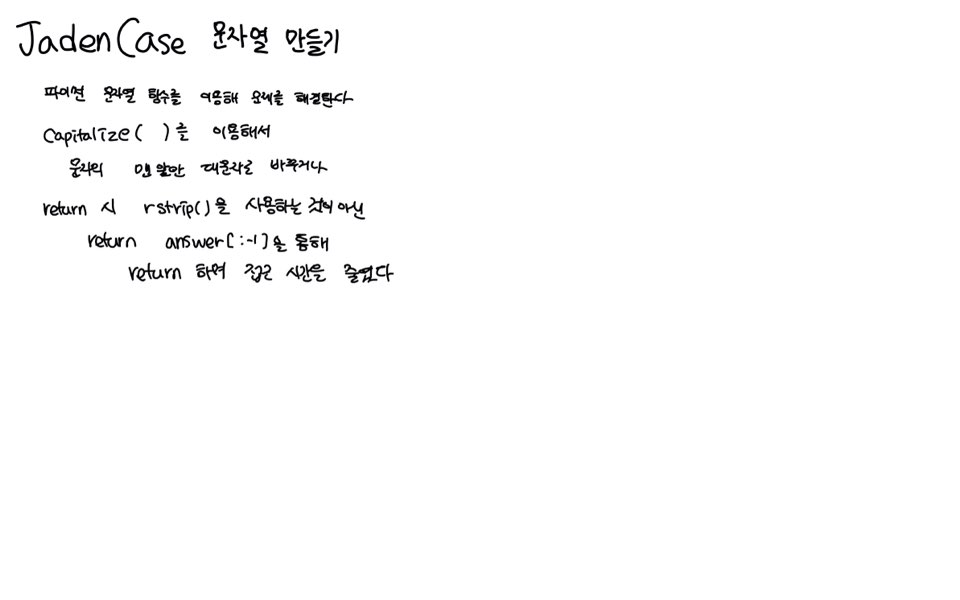 JadenCase 문자열 만들기
파이썬 문자열 함수를 이용해 문제를 해결한다
capitalize( )를 이용해서
문자의 맨 앞만 대문자로 바꾸거나
return 시 rstrip()을 사용하는 것이 아닌
return answer[:-1]을 통해
return 하여 접근 시간을 줄였다